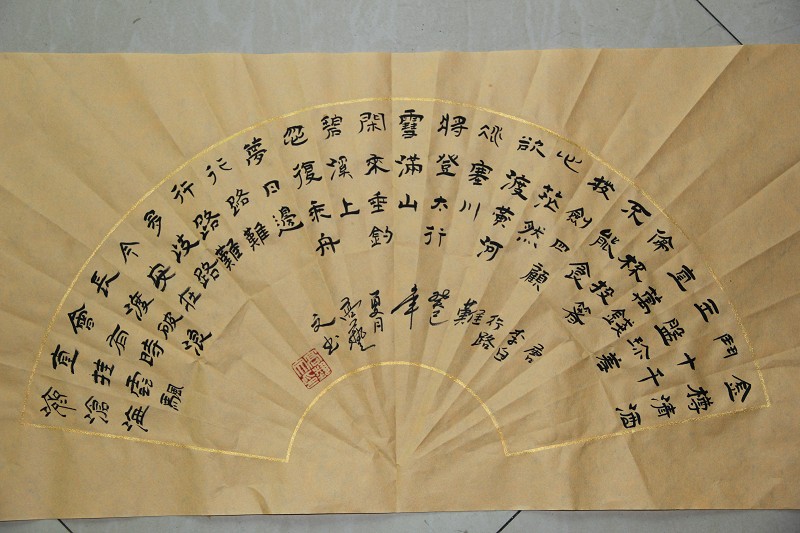 金樽清酒
鬥十千
玉盤珍羞
直萬錢
停杯投箸
不能食
拔劍四顧
心茫然
欲渡黃河
冰塞川
將登太行
雪滿山
閑來垂釣
碧溪上
忽復乘舟
夢日邊
行路難
行路難
多歧路
今安在
長風破浪
會有時
直挂雲颿
濟滄海
唐
李白
行路
難
年
夏月
文書